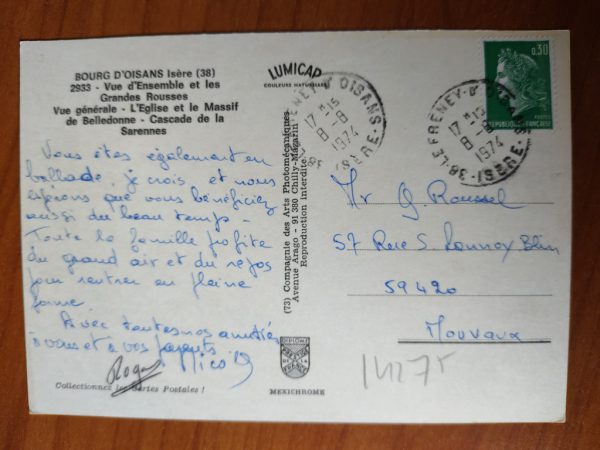 BOURG D'OISANS Isère (38)
2933 - Vue d'Ensemble et les
Grandes Rousses
Vue générale - L'Eglise et le Massif
de Belledonne - Cascade de la
Sarennes
Vous êtes également en
ballade, je crois et nous
espérons que vous bénéficiez
aussi du beau temps -
Toute la famille profite
du grand air et du repos
pour rentrer en pleine
forme
Avec toutes nos amitiés
à vous et à vos parents
Roger
Collectionnez les Cartes Postales !
LUMICAP
COULEURS NATURELLES
(73) Compagnie des Arts Photomécaniques
Avenue Arago - 91 380 Chilly-Mazarin
Reproduction interdite.
DIPLOME
PRESTIGE
DE LA
FRANCE
MEXICHROME
17 H -15
8 -8
1974
ISÈRE
0,30
POSTES
REPUBLIQUE FRANÇAISE
38 LE FRENEY-D'OISANS
17 H 15
8 -8
1974
ISÈRE
Mr G. Roussel
57 Rue S.
59420
Mouvaux